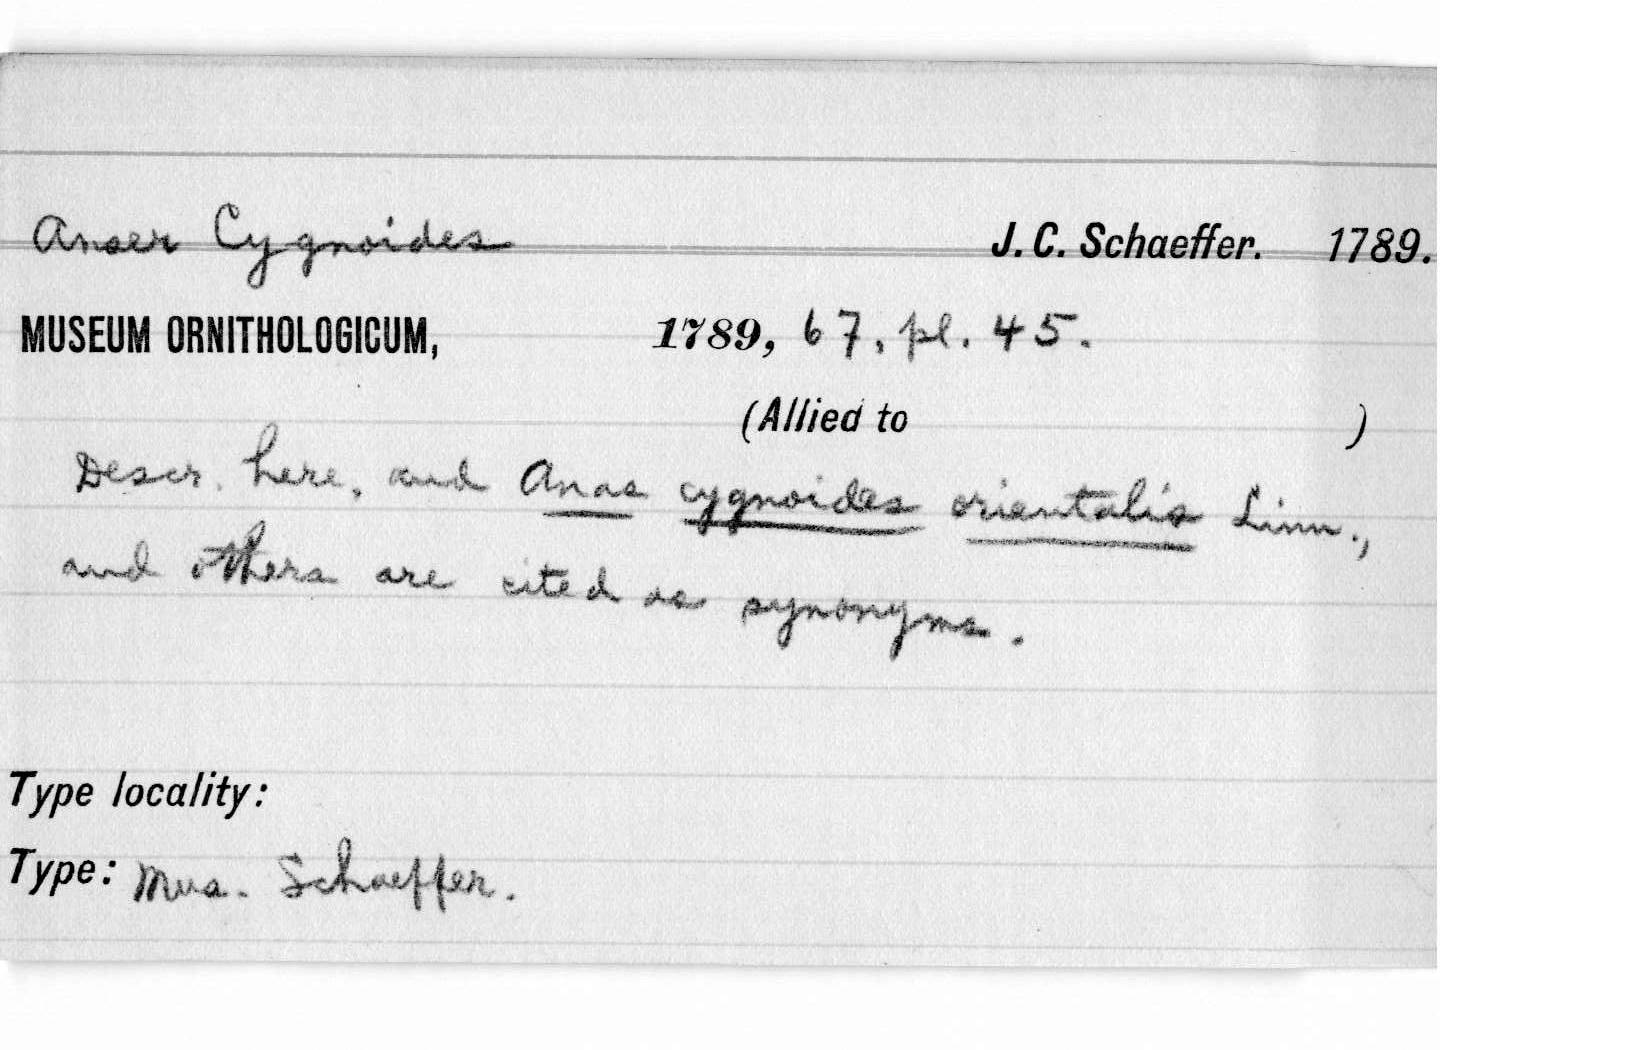 Anser Cygnoides J. C. Schaeffer. 1789.
MUSEUM ORNITHOLOGICUM, 1789, 67, pl. 45.
(Allied to )
Descr. here, and Anas cygnoides orientalis Linn.,
and others are cited as synonyms.
Type locality:
Type: Mus. Schaeffer.